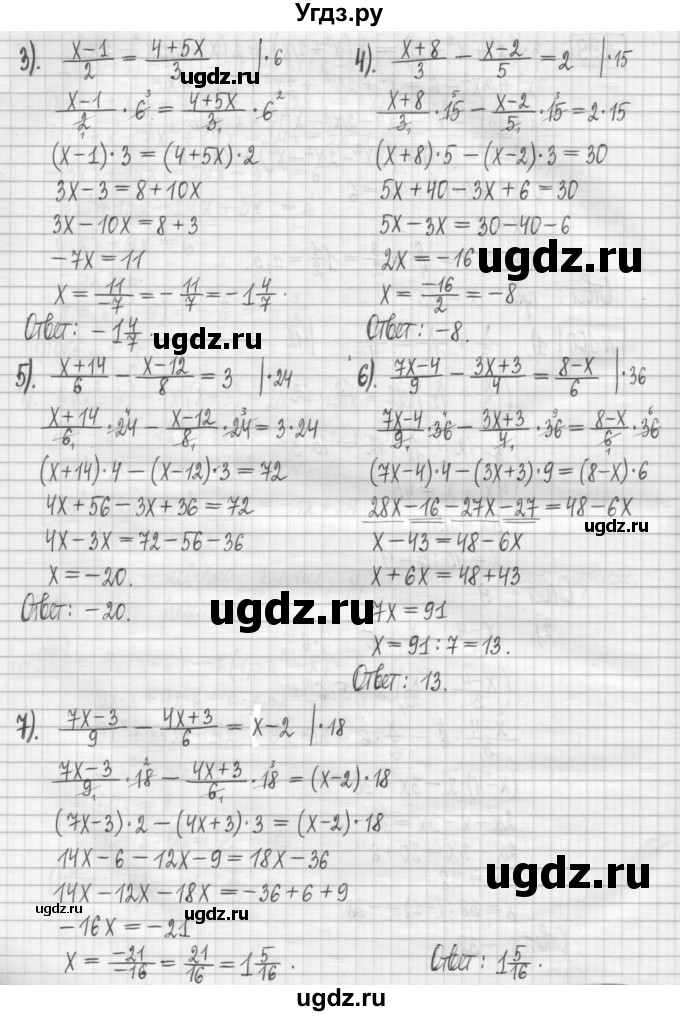 Угдз.ру
3). (x−1)/2 = (4+5x)/3 |·6
(x−1)/2₁ · 6³ = (4+5x)/3₁ · 6²
(x−1)·3 = (4+5x)·2
3x−3 = 8+10x
3x−10x = 8+3
−7x = 11
x = 11/−7 = −11/7 = −1 4/7.
Ответ: −1 4/7.
4). (x+8)/3 − (x−2)/5 = 2 |·15
(x+8)/3₁ · 15⁵ − (x−2)/5₁ · 15³ = 2·15
(x+8)·5 − (x−2)·3 = 30
5x+40−3x+6 = 30
5x−3x = 30−40−6
2x = −16
x = −16/2 = −8
Ответ: −8.
5). (x+14)/6 − (x−12)/8 = 3 |·24
(x+14)/6₁ · 24⁴ − (x−12)/8₁ · 24³ = 3·24
(x+14)·4 − (x−12)·3 = 72
4x+56−3x+36 = 72
4x−3x = 72−56−36
x = −20.
Ответ: −20.
6). (7x−4)/9 − (3x+3)/4 = (8−x)/6 |·36
(7x−4)/9₁ · 36⁴ − (3x+3)/4₁ · 36⁹ = (8−x)/6₁ · 36⁶
(7x−4)·4 − (3x+3)·9 = (8−x)·6
28x−16−27x−27 = 48−6x
x−43 = 48−6x
x+6x = 48+43
7x = 91
x = 91:7 = 13.
Ответ: 13.
7). (7x−3)/9 − (4x+3)/6 = x−2 |·18
(7x−3)/9₁ · 18² − (4x+3)/6₁ · 18³ = (x−2)·18
(7x−3)·2 − (4x+3)·3 = (x−2)·18
14x−6−12x−9 = 18x−36
14x−12x−18x = −36+6+9
−16x = −21
x = −21/−16 = 21/16 = 1 5/16.
Ответ: 1 5/16.
ugdz.ru
ugdz.ru
ugdz.ru
ugdz.ru
ugdz.ru
ugdz.ru
ugdz.ru
ugdz.ru
ugdz.ru
ugdz.ru
ugdz.ru